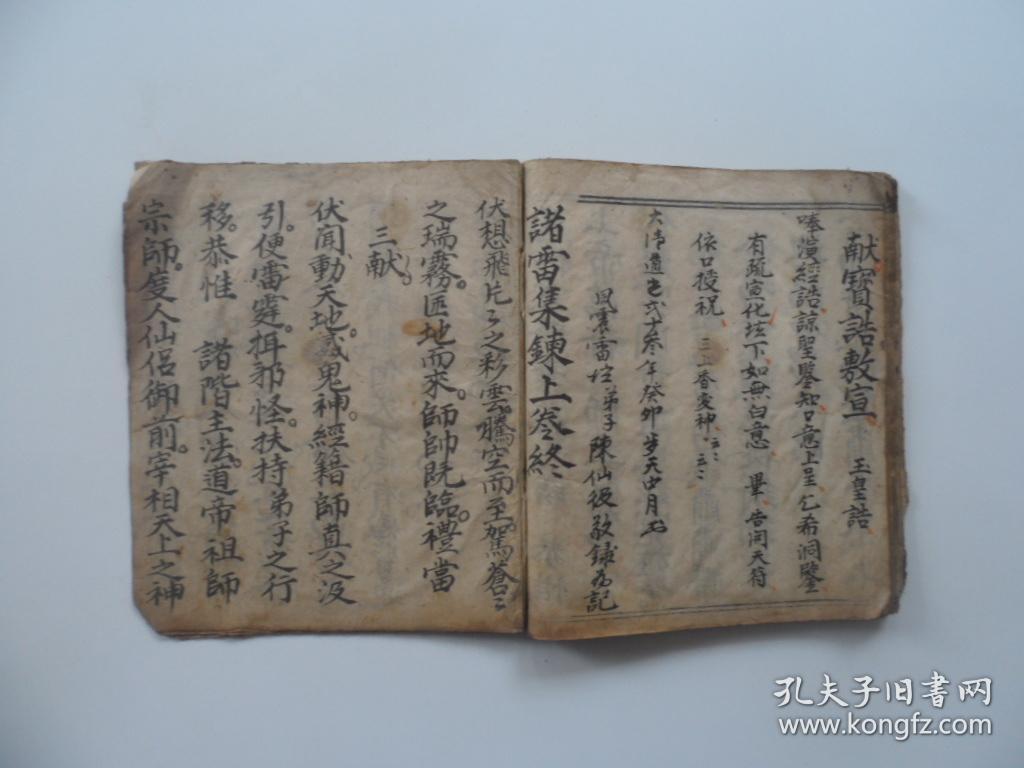 献寶誥敷宣 玉皇誥
唪演經誥諒聖鑒知口意上呈乞希洞鑒
有疏宣化坛下如無白意 畢 告闭天符
依口授祝 三上香变神
大清道光弍十叁年癸卯岁天中月
風雲雷坛弟子陳仙 敬録为記
諸雷集鍊上卷終
伏想飛片〻之彩雲騰空而至駕蒼〻
之瑞霧。匝地而來。師帥既臨。禮當
三献。
伏聞動天地感鬼神。經籍師真之没
引。便雷霆揖邪怪。扶持弟子之行
移。恭惟 諸階主法。道帝祖師
宗師。度人仙侣御前。宰相天上之神
孔夫子旧书网
www.kongfz.com